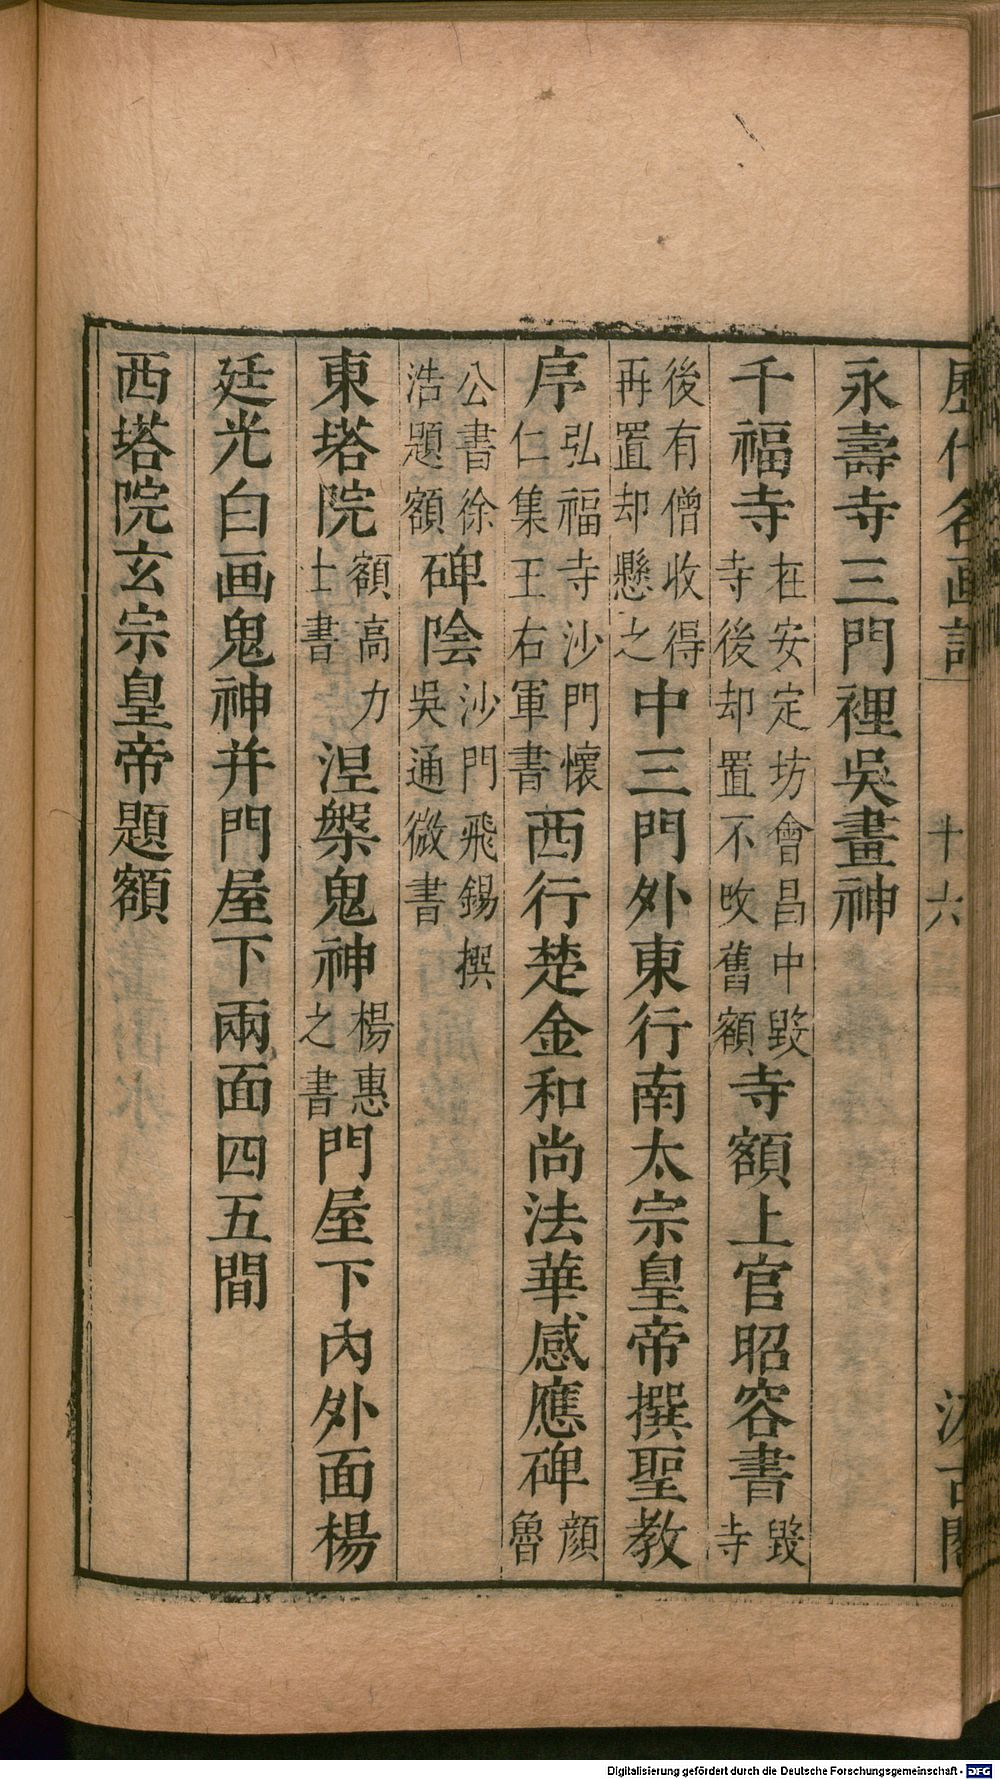 歷代名画記 十六 汲古閣
永壽寺三門裡吳畫神
千福寺在安定坊會昌中毀寺後却置不改舊額寺額上官昭容書毀寺
後有僧收得再置却懸之中三門外東行南太宗皇帝撰聖教
序弘福寺沙門懷仁集王右軍書西行楚金和尚法華感應碑顔魯
公書徐浩題額碑陰沙門飛錫撰吳通微書
東塔院額高力士書涅槃鬼神楊惠之書門屋下內外面楊
廷光白画鬼神并門屋下兩面四五間
西塔院玄宗皇帝題額
Digitalisierung gefördert durch die Deutsche Forschungsgemeinschaft - DFG